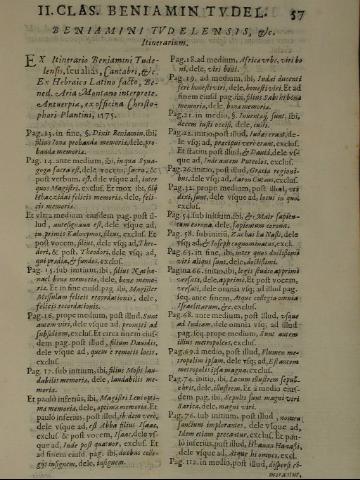 II. CLAS. BENIAMIN TVDEL. 57
BENIAMINI TVDELENSIS, &c.
Itinerarium.
EX Itinerario Beniamini Tude-
lensis, seu aliàs, Cantabri, &c.
Ex Hebraico Latino facto, Be-
ned. Aria Montano interprete.
Antuerpiæ, ex officina Christo-
phori Plantini, 1575.
Pag. 23. in fine, §. Dixit Beniamin, ibi,
filius Iona probanda memoriæ, dele, pro-
banda memoriæ.
Pag. 14. ante medium, ibi, in qua Syna-
goga sacra est, dele vocem sacra, &
post verbum, est, dele vsque ad, inter
quos Magistri. exclus. Et mox ibi, filij
Achitiæ felicis memoriæ, dele, feli-
cis memoriæ.
Et vltra medium eiusdem pag. post il-
lud, dele vsque ad,
exclus. Et
post vocem, filius, dele vsq; ad, Theo-
deri, & post, Theodori, dele vsq; ad,
exclus.
Pag. 15. sub initium, ibi, filius Natha-
naël bonæ memoriæ, dele, bonæ memo-
riæ. Et in fine eiusd. pag. ibi, Magister
Mesullam felicis recordationis, dele,
felicis recordationis.
Pag. 16. prope medium, post illud, Sunt
autem viri, dele vsque ad, promti ad
subsidium, exclus. Et circa finem eius-
dem pag. post illud, filium Dauidis,
dele vsque ad, quem è
exclus.
Pag. 17. sub initium, ibi, filius Mosis lau-
dabilis memoriæ, dele, laudabilis me-
moriæ.
Et paulò inferius, ibi, Magistri
memoria, dele, optima memoriæ. Et
paulò inferius, post illud, ibidem viri,
dele vsque ad, est Abba filius Isaac,
exclus. & post vocem, Isaac, dele vs-
que ad, Inde post quatuor, exclus. Et
ad finem eiusd. pag. ibi, duobus colle-
gijs insignem, dele, insignem.
Pag. 18. ad medium, Africæ vrbs, viri bo
ni, dele, viri boni.
Pag. 19. ad medium, ibi, Iudæi ducenti
ferè honesti viri, dele, honesti viri. Et ad
finem eiusd. pag. ibi, filius Sabi in bonæ
memoriæ, dele, bonæ memoriæ.
Pag. 21. in medio, §. ibi,
dele, iusti.
Pag. 22. initio, post illud, Iudæi erant, de-
le vsq; ad, præcipui verò eram, exclus.
Et statim post illud, & Dauid, dele vs-
que ad, Inde autem Puteolos, exclus.
Pag. 26. initio, post illud, Græciæ regioni-
bus, dele vsq; ad, exclus.
Pag. 32. prope medium, post illud, viri
dele vsque ad, locus in quo
exclus.
Pag. 54. sub initium, ibi, & Mair sapien-
tem coronæ, dele, sapientem coronæ.
Pag. 58. sub initiũ, dele
vsq; ad, & Ioseph cognominatus, excl.
Pag. 63. in fine, ibi, inter quos doctissimi
viri aliqui sunt, dele, doctissimi.
Pagina 66. initio, ibi, legis studio apprimè
versati, dele, apprimè. Et post vocem,
versati, dele omnia vsq; ad illud pag.
seq. ante finem, Atque collegia omnia
Israëlitarum, &c. exclus.
Pag. 68. ante medium, post illud, vsque
ad Indiam, dele omnia vsq; ad illud
pag. seq. prope medium, Sunt autem
illius metropoleos, exclus.
Pag. 69. à medio, post illud, Flumen me-
tropolim ipsam, dele vsq; ad, Est autem
metropolis ipsa magna, excl.
Pag. 74. initio, ibi, Locum illustrem sepul-
chro, dele, illustrem. Et à medio eius-
dem pag. ibi, Sepulti sunt magni viri
dele, magni viri.
Pag. 76. sub initium, post illud, nomen
sanctum implorantes, dele vsque ad,
Idem etiam precantur, exclus. Et pau-
lò inferius, post illud,
dele vsque ad, Atque hi omnes, excl.
Pag. 112. in medio, post illud, dispersi